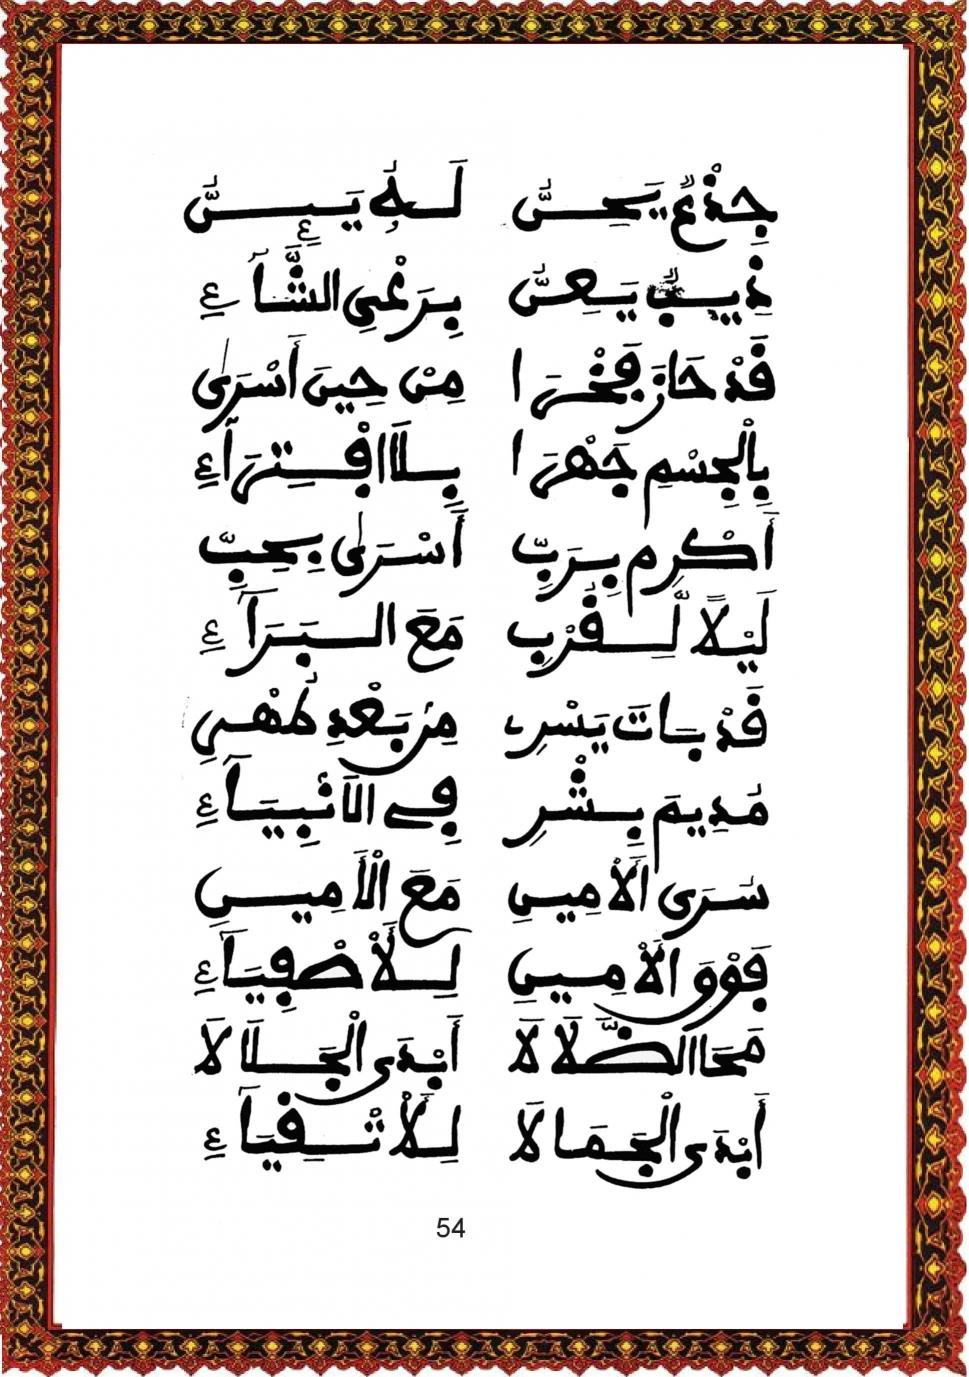 جِذْعٌ يَحِنُّ لَهُ يَئِنُّ
ذِيبٌ يَعِنُّ بِرَعْيِ الشَّآءِ
قَدْ حَازَ فَخْرَا مِنْ حِينَ أَسْرَىٰ
بِالْجِسْمِ جَهْرَا بِلَا افْتِرَآءِ
أَكْرِم بِرَبِّ أَسْرَىٰ بِحِبِّ
لَيْلًا لِّقُرْبِ مَعَ الْبَرَآءِ
قَدْ بَاتَ يَسْرِ مِنْ بَعْدِ طُهْرِ
مُدِيمَ بِشْرِ فِي الَانْبِيَآءِ
سَرَى الَامِينِ مَعَ الْأَمِينِ
فَوْقَ الَامِينِ لِلْأَصْفِيَآءِ
مَحَا الضَّلَالَا أَبْدَى الْجَلَالَا
أَبْدَى الْجَمَالَا لِلْأَتْقِيَآءِ
54